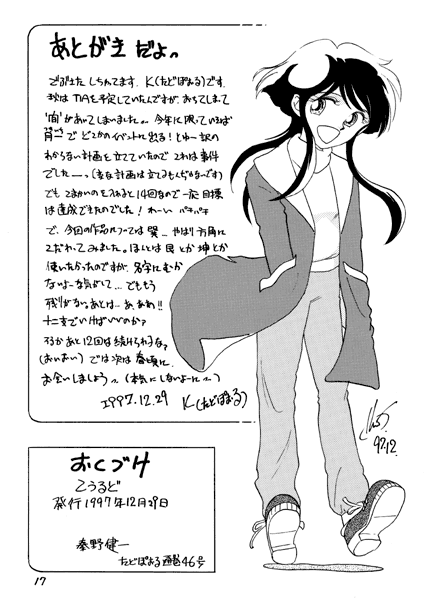 あとがき だよっ
でぶまた しちゃてます、K(たどぽおる)です。
秋は TIAを予定していたんですが、おちてしまって
"間"があいてしまいました。。今年に限っていえば
月一で どこかのイベントに出る!とゆー訳の
わからない計画を立てていたので これは事件
でしたーっ(変な計画は立てるもんぢゃないです)
でも こまかいの を入れると 14回なので一応 目標
は達成できたのでした! わーい パチパチ
で、今回の作品については 巽… やはり 方角に
こだわってみました。ほんとは 艮 とか 坤 とか
使いたかったのですが、名字に むか
ないよーな気がして… でももう
残りがない。あとは… あ、あれ!!
十二支でいけばいいのか?
するか あと12回は続けられるな?
(おいおい) では 次は 春頃に
お会いしましょう〜 (本気にしないよーに〜)
1997.12.29 K(たどぽおる)
97.12.
おくづけ
こうるど
発行 1997年12月29日
秦野健一
たどぽおる 通巻46号
17